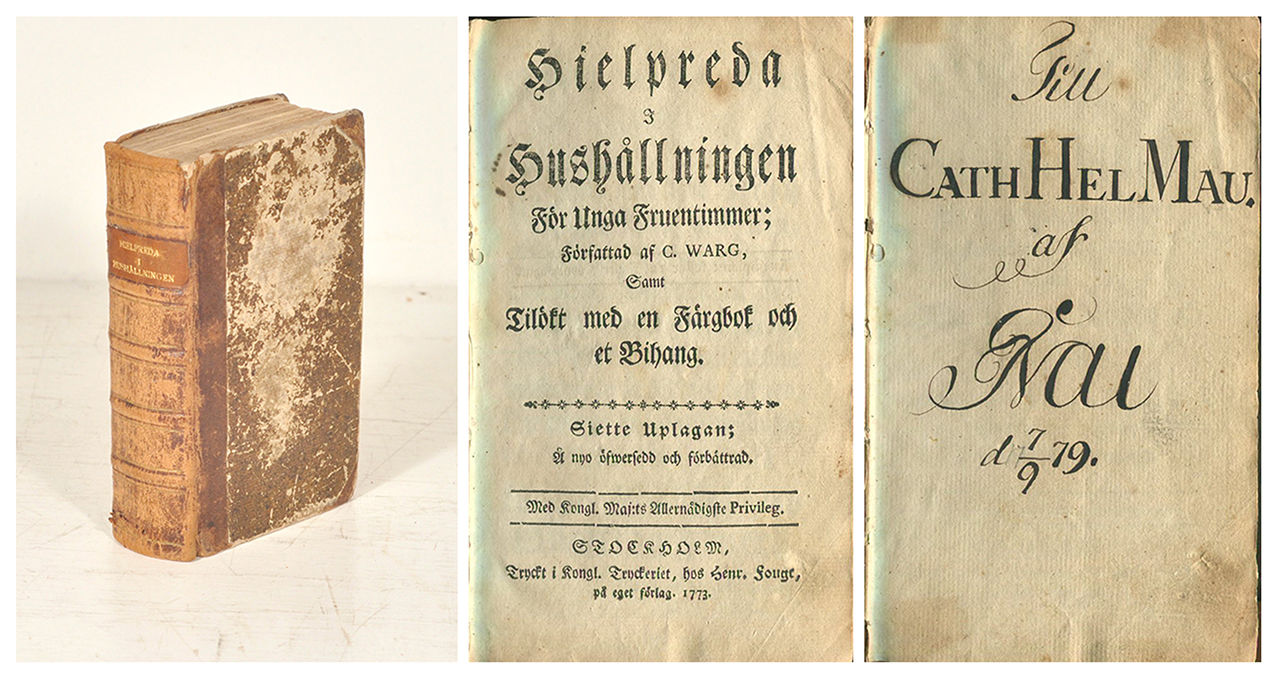 HIELPREDA
I
HUSHÅLLNINGEN
Hielpreda
I
Hushållningen
För Unga Fruentimmer;
Författad af C. WARG,
Samt
Tilökt med en Färgbok och
et Bihang.
Siette Uplagan;
Å nyo öfwersedd och förbättrad.
Med Kongl. Maj:ts Allernådigste Privileg.
STOCKHOLM,
Tryckt i Kongl. Tryckeriet, hos Henr. Fougt,
på eget förlag. 1773.
Till
CATH HEL MAU.
af
d 7/9 79.